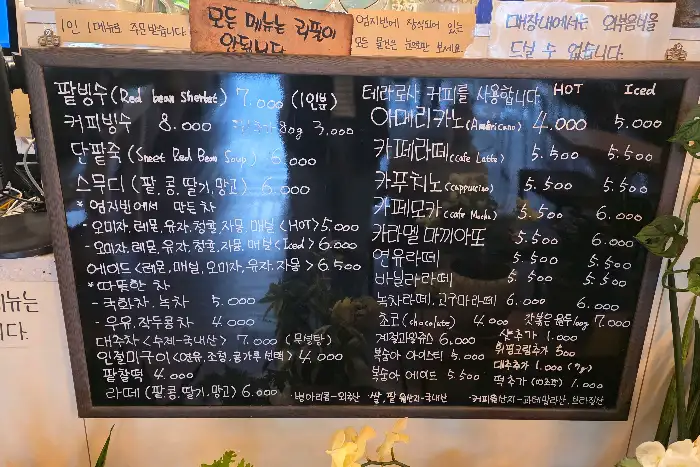 1인 1메뉴로 주문받습니다.
모든 메뉴는 리필이
안됩니다.
엄지빈에 장식되어 있는
모든 물건은 눈으로만 보세요.
매장내에서는 외부음식을
드실 수 없습니다.
팥빙수 (Red bean Sherbet) 7.000 (1인분)
커피빙수 8.000 80g 3.000
단팥죽 (Sweet Red Bean Soup) 6.000
스무디 (팥,콩,딸기,망고) 6.000
* 엄지빈에서 만든 차
- 오미자,레몬,유자,청귤,자몽,매실 <HOT> 5.000
- 오미자,레몬,유자,청귤,자몽,매실 <Iced> 6.000
에이드 <레몬,매실,오미자,유자,자몽> 6.500
* 따뜻한 차
- 국화차, 녹차 5.000
- 우유,작두콩차 4.000
대추차 <수제-국내산> 7.000 (무설탕)
인절미구이 <연유,조청,콩가루 선택> 4.000
팥찰떡 4.000
라떼 (팥,콩,딸기,망고) 6.000
테라로사 커피를 사용합니다. HOT Iced
아메리카노 (Americano) 4.000 5.000
카페라떼 (cafe Latte) 5.500 5.500
카푸치노 (cappuccino) 5.500 5.500
카페모카 (cafe Mocha) 5.500 6.000
카라멜 마끼아또 5.500 6.000
연유라떼 5.500 5.500
바닐라라떼 5.500 5.500
녹차라떼, 고구마라떼 6.000 6.000
초코 (chocolate) 4.000 갓볶은 원두 100g 7.000
계절과일쥬스 6.000 샷추가 1.000
휘핑크림추가 500
복숭아 아이스티 5.000 대추추가 1.000 (7g)
복숭아 에이드 5.500 떡추가 (10조각) 1.000
·병아리콩-외국산 ·쌀,팥 원산지-국내산 ·커피원산지-과테말라산, 브라질산
메뉴는
니다.